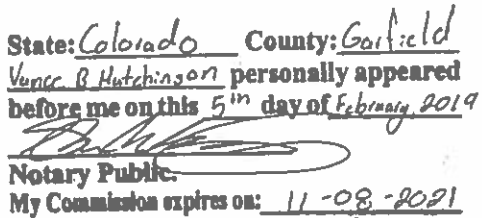 State: Colorado County: Garfield
Vance B Hutchinson personally appeared
before me on this 5th day of February, 2019
Notary Public.
My Commission expires on: 11-08-2021